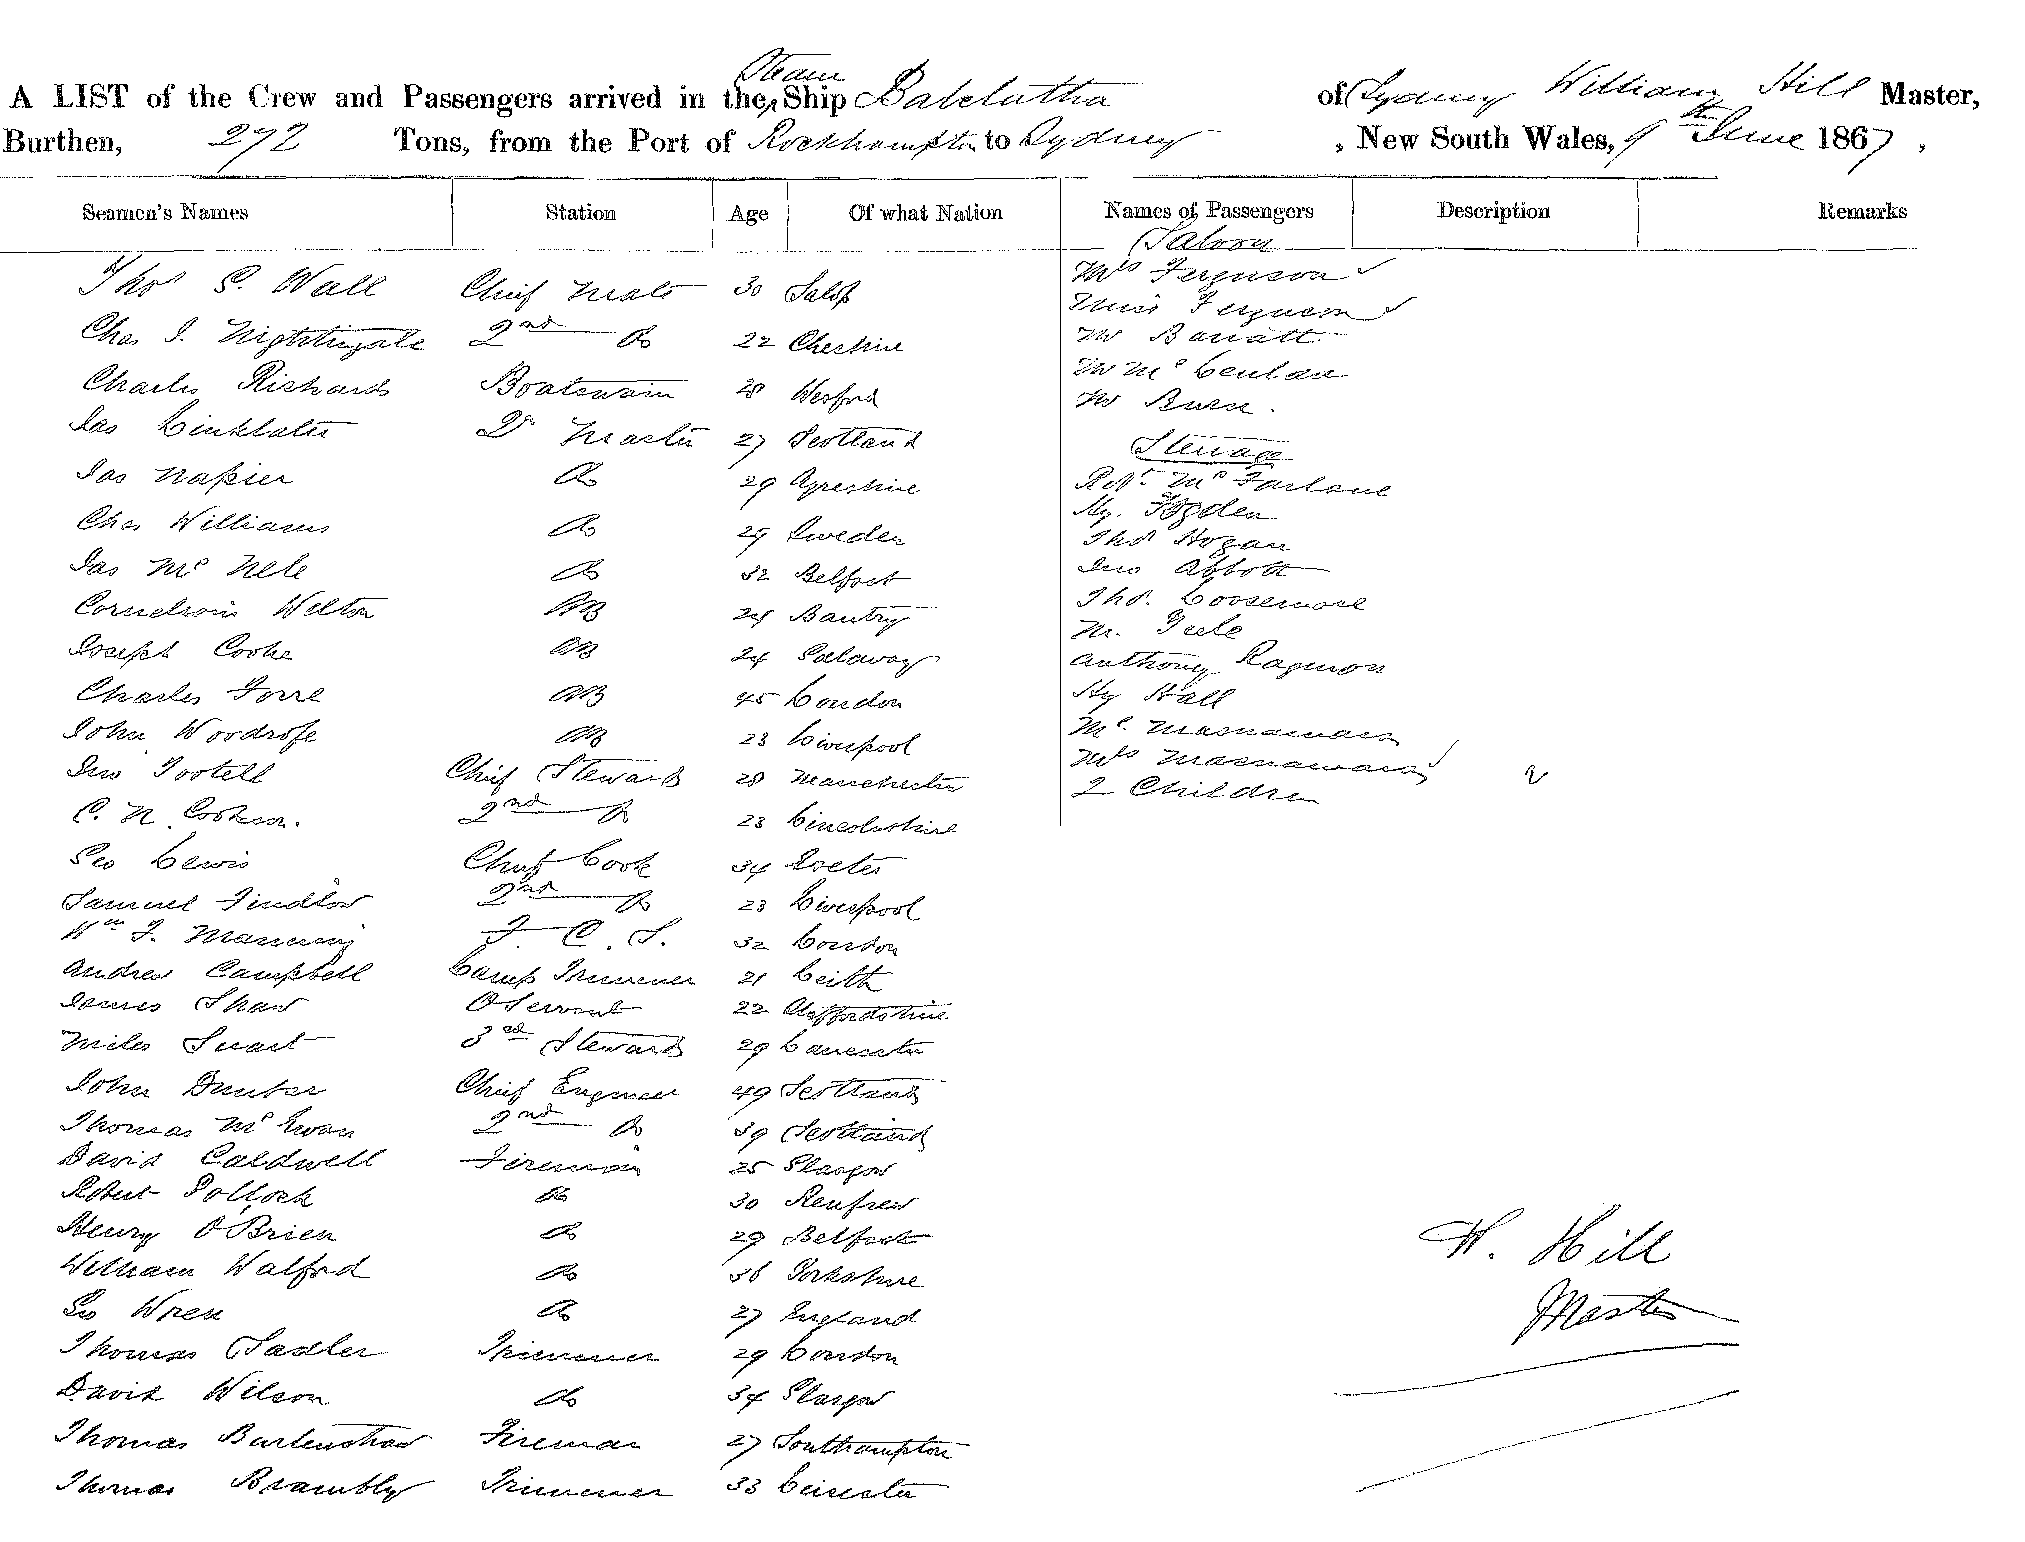 A LIST of the Crew and Passengers arrived in the Steam Ship Balclutha of Sydney William Hill Master,
Burthen, 272 Tons, from the Port of Rockhampton to Sydney, New South Wales, 9th June 1867,
Seamen's Names Station Age Of what Nation Names of Passengers Description Remarks
Thos S. Wall Chief Mate 30 Salop
Chas J. Nightingale 2nd Do 22 Cheshire
Charles Richards Boatswain 28 Wexford
Jas Linklater Qr Master 27 Scotland
Jas Napier Do 29 Ayreshire
Chas Williams Do 29 Sweden
Jas Mc Nele Do 32 Belfast
Cornelious Welton AB 24 Bantry
Joseph Cooke AB 24 Galaway
Charles Torre AB 45 London
John Woodrofe AB 23 Liverpool
Jno Tootell Chief Steward 28 Manchester
C. N. Cookson. 2nd Do 23 Lincolnshire
Geo Lewis Chief Cook 34 Exeter
Samuel Findlow 2nd Do 23 Liverpool
Wm J. Manning F. C. S. 32 London
Andrew Campbell Lamp Trimmer 21 Leith
James Shaw O Servant 22 Staffordshire
Miles Suart 3rd Steward 29 Lancaster
John Dunbar Chief Engineer 49 Scotland
Thomas Mc Ewan 2nd Do 39 Scotland
David Caldwell Fireman 25 Glasgow
Robert Pollock Do 30 Renfrew
Henry OBrien Do 29 Belfast
William Walford Do 36 Yorkshire
Geo Wren Do 27 England
Thomas Sadler Trimmer 29 London
David Wilson do 34 Glasgow
Thomas Burtenshaw Fireman 27 Southampton
Thomas Brambly Trimmer 33 Leicester
Saloon
Mrs Ferguson
Miss Ferguson
Mr Barratt
Mr Mc
Mr Burn.
Steerage
Robt. Mc Farlane
Hy. Fogden
Thos Hogan
Jno Abbott
Thos. Loosemore
Mr. Teele
Anthony
Hy Hall
Mr.
Mrs
2 Children 2
W. Hill
Master